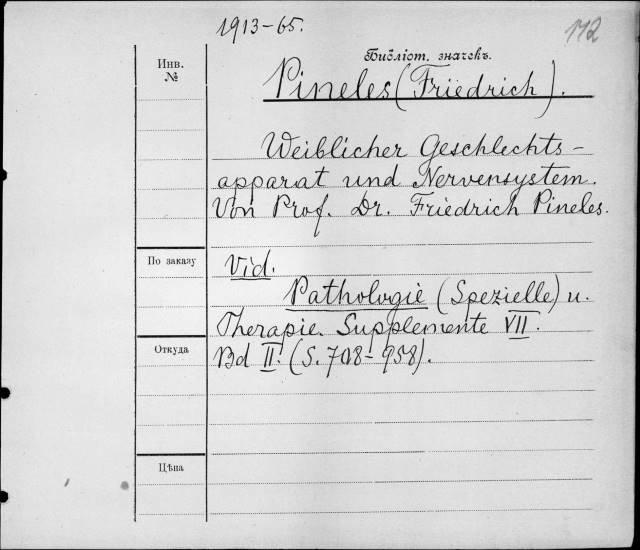 1913-65.
112
Библіот. значекъ.
Инв.
№
Pineles (Friedrich).
Weiblicher Geschlechts-
apparat und Nervensystem.
Von Prof. Dr. Friedrich Pineles.
По заказу
Vid.
Pathologie (Spezielle) u.
Therapie. Supplemente VII.
Откуда
Bd II. (S. 708-958).
Цѣна